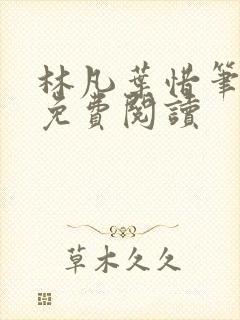 林凡葉惜筆
免費閱讀
草木久久